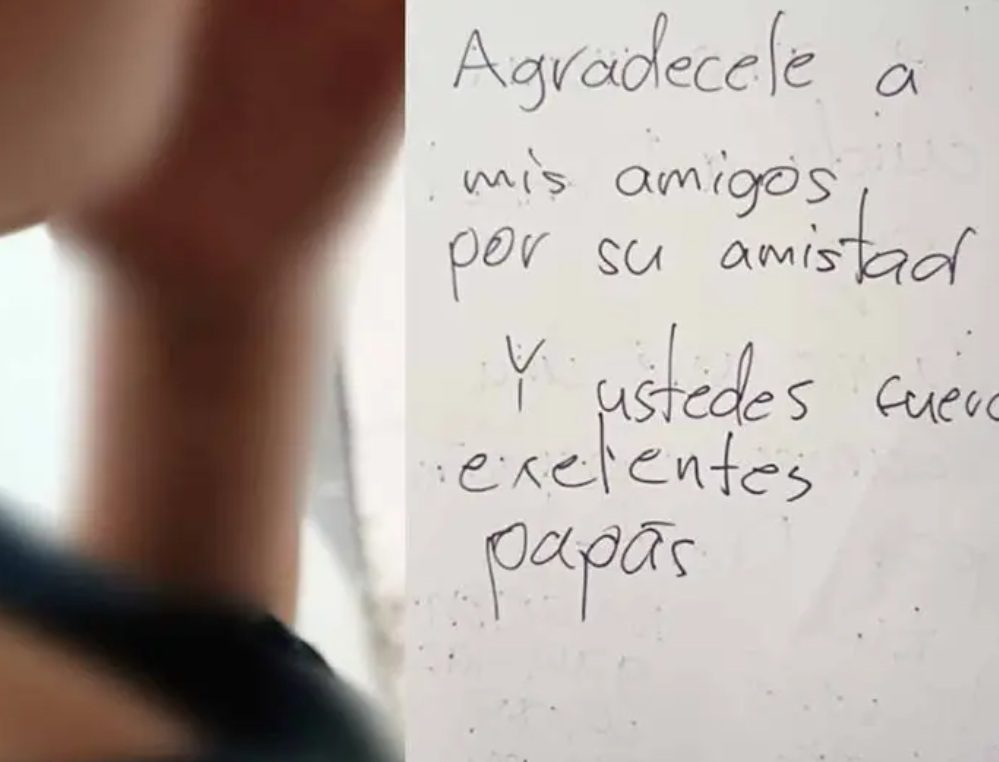 Agradecele a
mis amigos,
por su amistad
Y ustedes
exelentes
papás